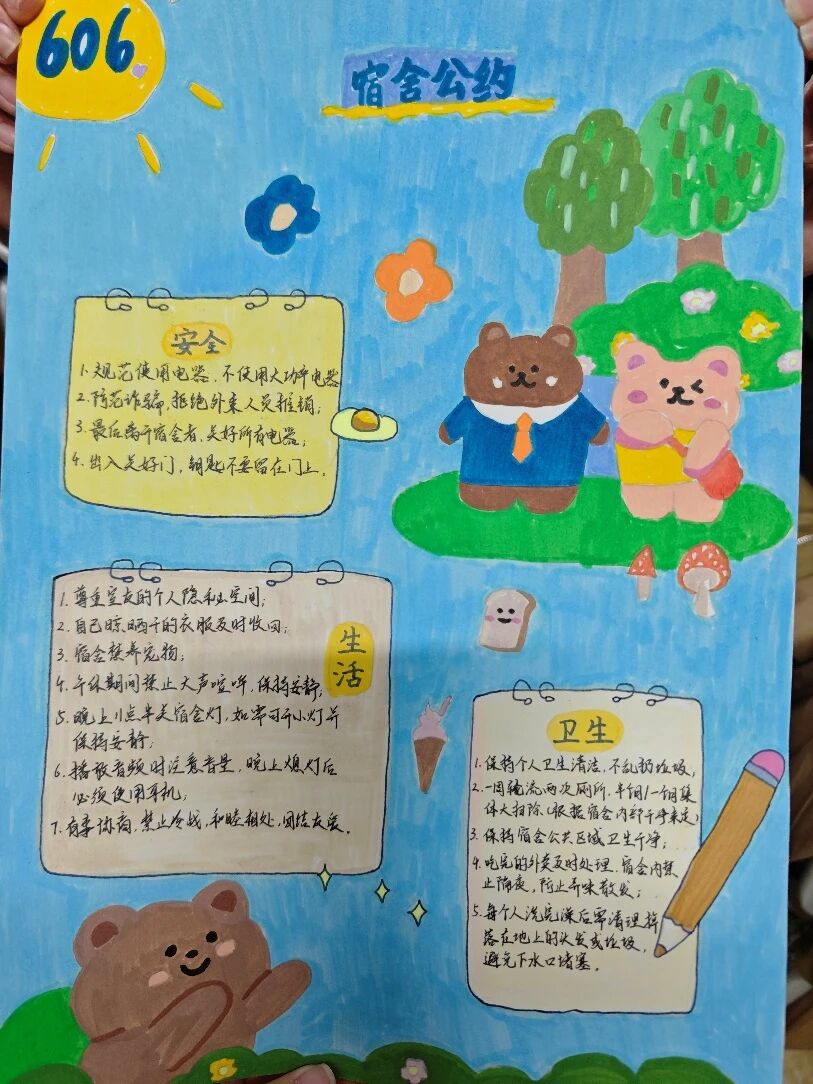 606
宿舍公约
安全
1.规范使用电器,不使用大功率电器
2.防范诈骗,拒绝外来人员推销;
3.最后离开宿舍者,关好所有电器;
4.出入关好门,钥匙不要留在门上。
生活
1.尊重室友的个人隐私空间;
2.自己晾晒干的衣服及时收回;
3.宿舍禁养宠物;
4.午休期间禁止大声喧哗,保持安静;
5.晚上11点半关宿舍灯,如需可开小灯并
保持安静;
6.播放音频时注意音量,晚上熄灯后
必须使用耳机;
7.有事协商,禁止冷战,和睦相处,团结友爱。
卫生
1.保持个人卫生清洁,不乱扔垃圾;
2.一周轮流两次厕所,半个月/一个月集
体大扫除(根据宿舍内部干净来定)
3.保持宿舍公共区域卫生干净;
4.吃完的外卖及时处理,宿舍内禁
止隔夜,防止异味散发;
5.每个人洗完澡后需清理掉
落在地上的头发或垃圾,
避免下水口堵塞。